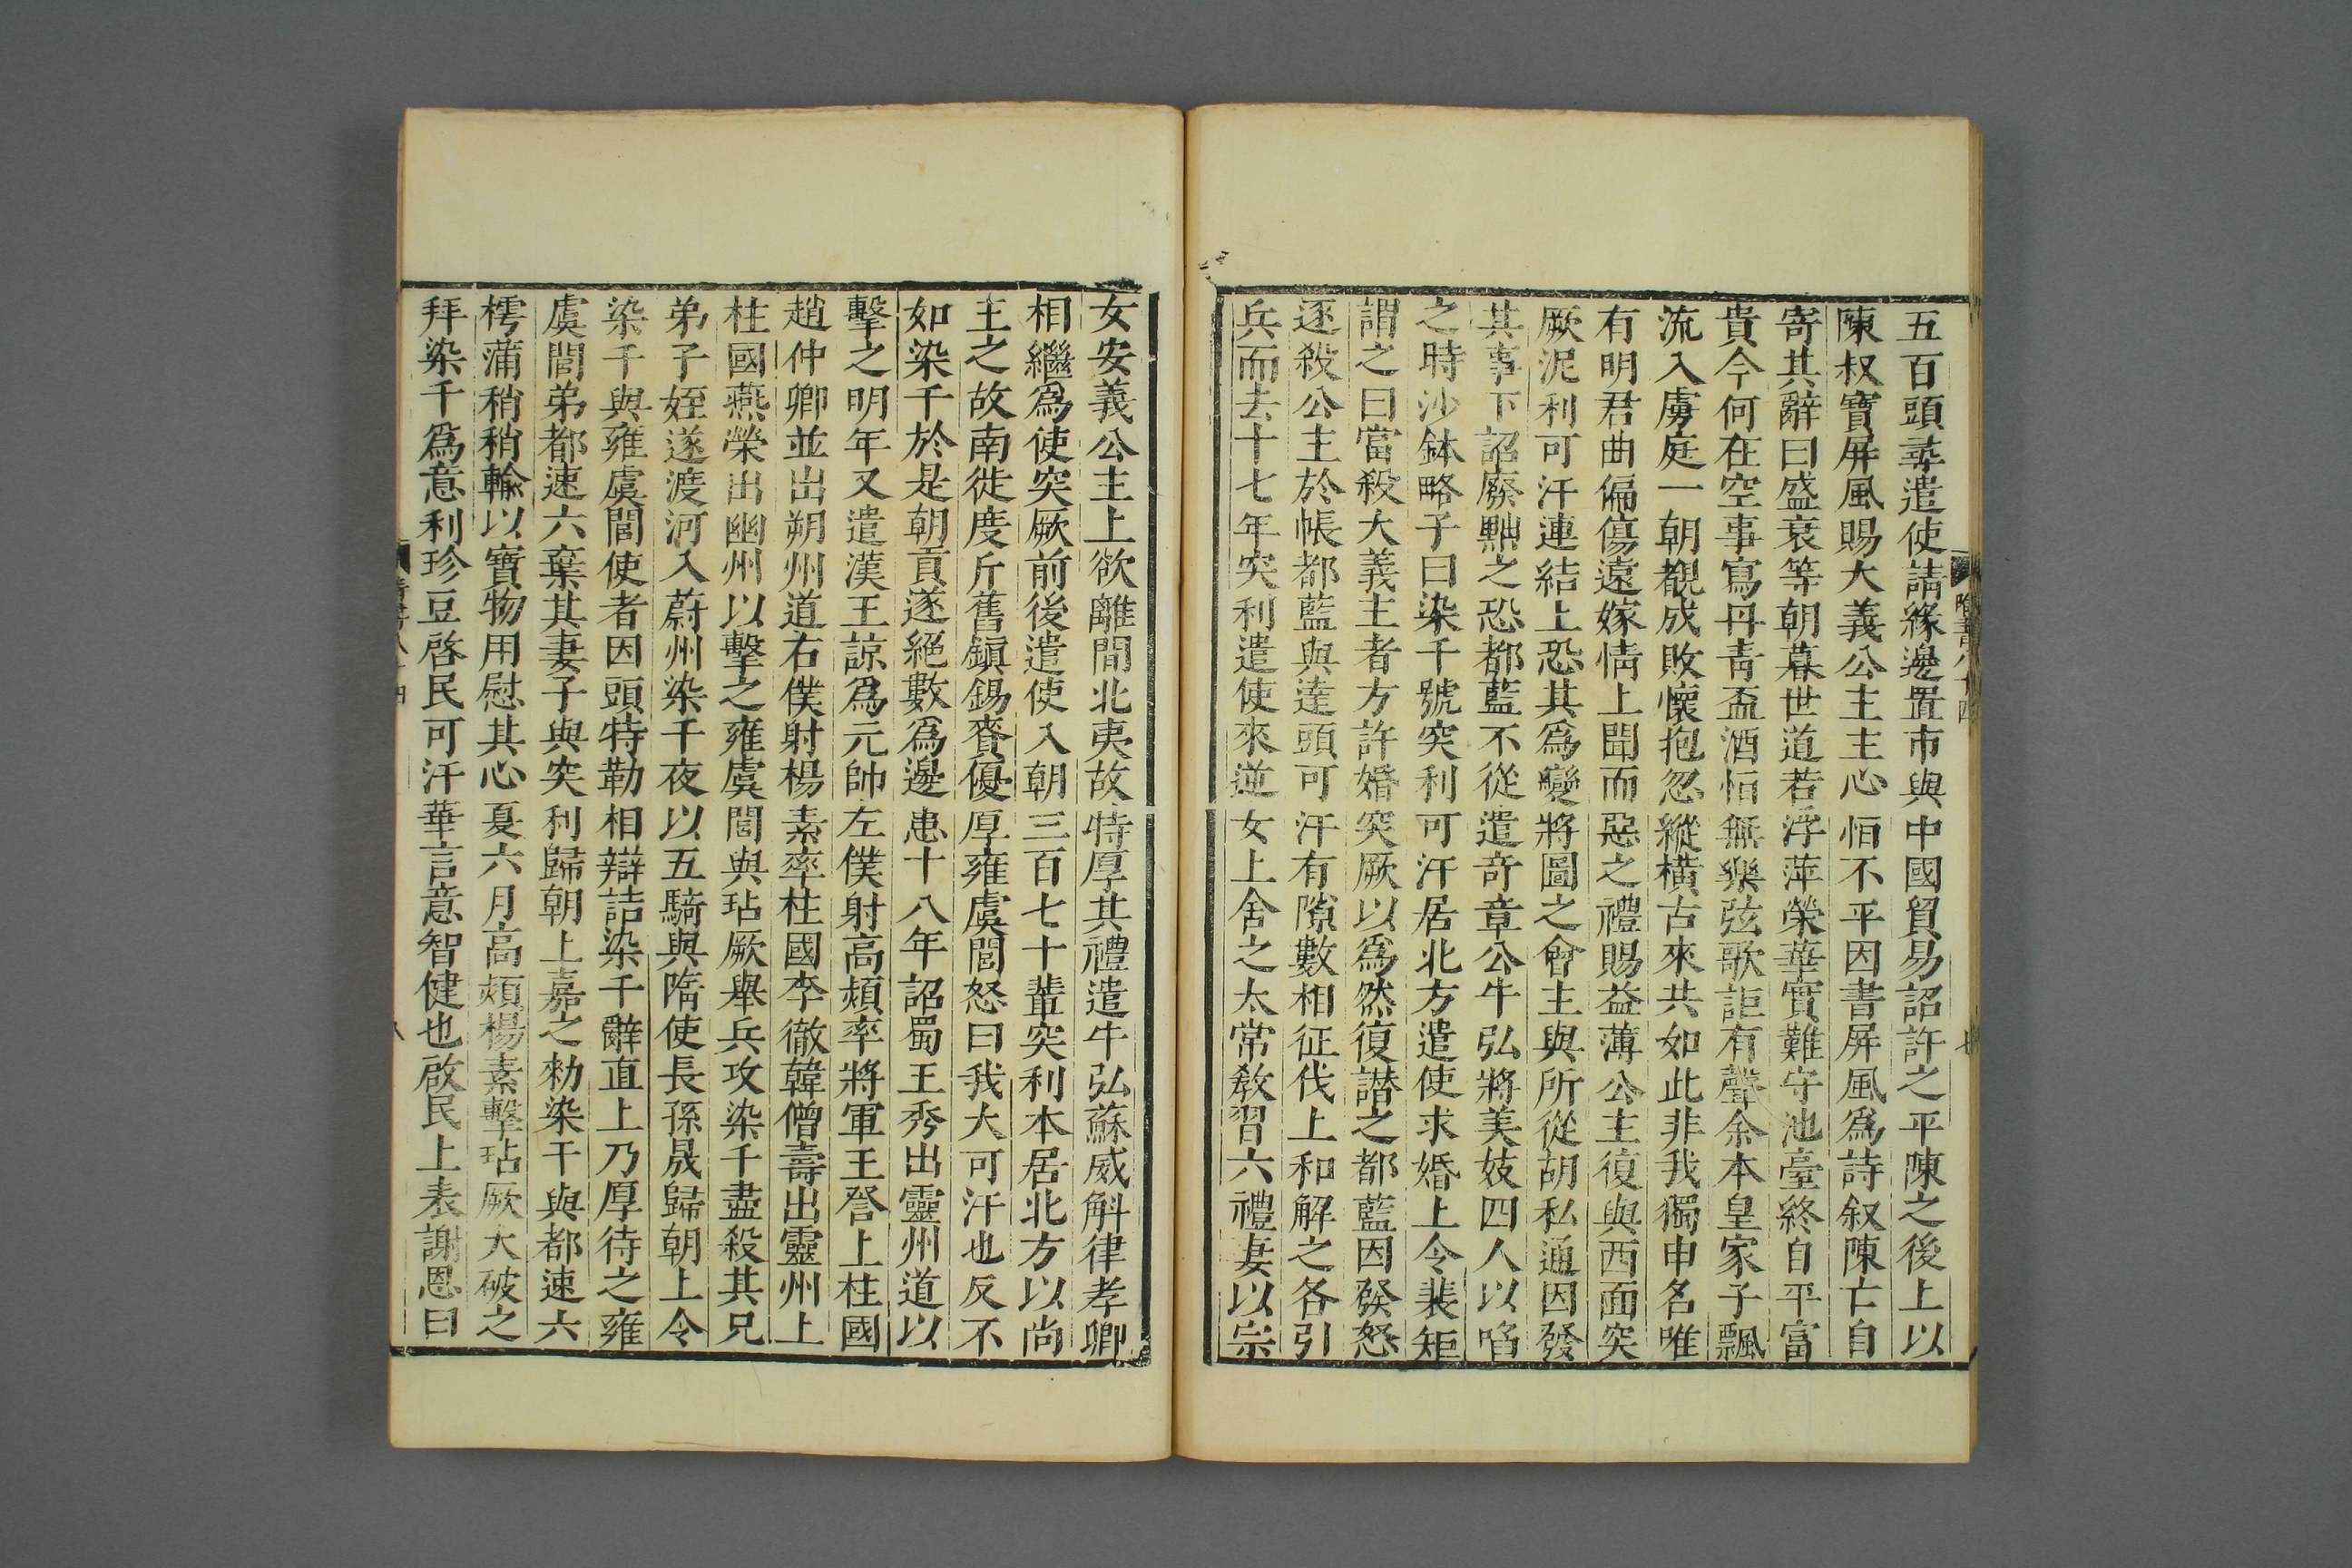 五百頭尋遣使請緣邊置市與中國貿易詔許之平陳之後上以
陳叔寶屏風賜大義公主主心恒不平因書屏風爲詩叙陳亡自
寄其辭曰盛衰等朝暮世道若浮萍榮華實難守池臺終自平富
貴今何在空事寫丹青盃酒恒無樂弦歌詎有聲余本皇家子飄
流入虜庭一朝覩成敗懷抱忽縱横古來共如此非我獨申名唯
有明君曲偏傷遠嫁情上聞而惡之禮賜益薄公主復與西面突
厥泥利可汗連結上恐其爲變將圖之會主與所從胡私通因發
其事下詔廢黜之恐都藍不從遣竒章公牛弘將美妓四人以啗
之時沙鉢略子曰染干號突利可汗居北方遣使求婚上令裴矩
謂之曰當殺大義主者方許婚突厥以爲然復譖之都藍因發怒
遂殺公主於帳都藍與達頭可汗有隙數相征伐上和解之各引
兵而去十七年突利遣使來逆女上舍之太常敎習六禮妻以宗
女安義公主上欲離間北夷故特厚其禮遣牛弘蘇威斛律孝卿
相繼爲使突厥前後遣使入朝三百七十輩突利本居北方以尚
主之故南徙度斤舊鎭錫賚優厚雍虞閭怒曰我大可汗也反不
如染干於是朝貢遂絕數爲邊患十八年詔蜀王秀出靈州道以
擊之明年又遣漢王諒爲元帥左僕射高熲率將軍王詧上柱國
趙仲卿並出朔州道右僕射楊素率柱國李徹韓僧壽出靈州上
柱國燕榮出幽州以擊之雍虞閭與玷厥舉兵攻染干盡殺其兄
弟子姪遂渡河入蔚州染干夜以五騎與隋使長孫晟歸朝上令
染干與雍虞閭使者因頭特勒相辯詰染干辭直上乃厚待之雍
虞閭弟都速六棄其妻子與突利歸朝上嘉之勑染干與都速六
樗蒲稍稍輸以寶物用慰其心夏六月高熲楊素擊玷厥大破之
拜染干爲意利珍豆啓民可汗華言意智健也啟民上表謝恩曰
隋書八十四
七